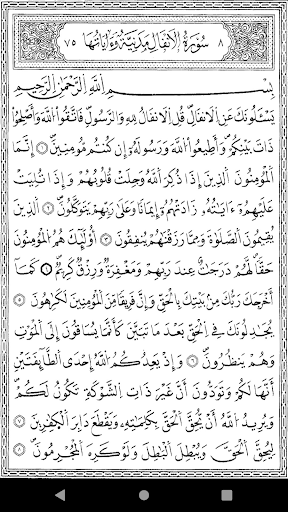 ٨ سُورَةُ الْأَنْفَالِ مَدَنِيَّةٌ وَءَايَاتُهَا ٧٥
بِسْمِ اللَّهِ الرَّحْمَٰنِ الرَّحِيمِ
يَسْـَٔلُونَكَ عَنِ الْأَنفَالِ قُلِ الْأَنفَالُ لِلَّهِ وَالرَّسُولِ فَاتَّقُوا اللَّهَ وَأَصْلِحُوا
ذَاتَ بَيْنِكُمْ وَأَطِيعُوا اللَّهَ وَرَسُولَهُ إِن كُنتُم مُّؤْمِنِينَ ١ إِنَّمَا
الْمُؤْمِنُونَ الَّذِينَ إِذَا ذُكِرَ اللَّهُ وَجِلَتْ قُلُوبُهُمْ وَإِذَا تُلِيَتْ
عَلَيْهِمْ ءَايَٰتُهُ زَادَتْهُمْ إِيمَانًا وَعَلَىٰ رَبِّهِمْ يَتَوَكَّلُونَ ٢ الَّذِينَ
يُقِيمُونَ الصَّلَوٰةَ وَمِمَّا رَزَقْنَٰهُمْ يُنفِقُونَ ٣ أُولَٰئِكَ هُمُ الْمُؤْمِنُونَ
حَقًّا لَّهُمْ دَرَجَٰتٌ عِندَ رَبِّهِمْ وَمَغْفِرَةٌ وَرِزْقٌ كَرِيمٌ ٤ كَمَا
أَخْرَجَكَ رَبُّكَ مِنْ بَيْتِكَ بِالْحَقِّ وَإِنَّ فَرِيقًا مِّنَ الْمُؤْمِنِينَ لَكَٰرِهُونَ ٥
يُجَٰدِلُونَكَ فِي الْحَقِّ بَعْدَ مَا تَبَيَّنَ كَأَنَّمَا يُسَاقُونَ إِلَى الْمَوْتِ
وَهُمْ يَنظُرُونَ ٦ وَإِذْ يَعِدُكُمُ اللَّهُ إِحْدَى الطَّائِفَتَيْنِ
أَنَّهَا لَكُمْ وَتَوَدُّونَ أَنَّ غَيْرَ ذَاتِ الشَّوْكَةِ تَكُونُ لَكُمْ
وَيُرِيدُ اللَّهُ أَن يُحِقَّ الْحَقَّ بِكَلِمَٰتِهِ وَيَقْطَعَ دَابِرَ الْكَٰفِرِينَ ٧
لِيُحِقَّ الْحَقَّ وَيُبْطِلَ الْبَٰطِلَ وَلَوْ كَرِهَ الْمُجْرِمُونَ ٨